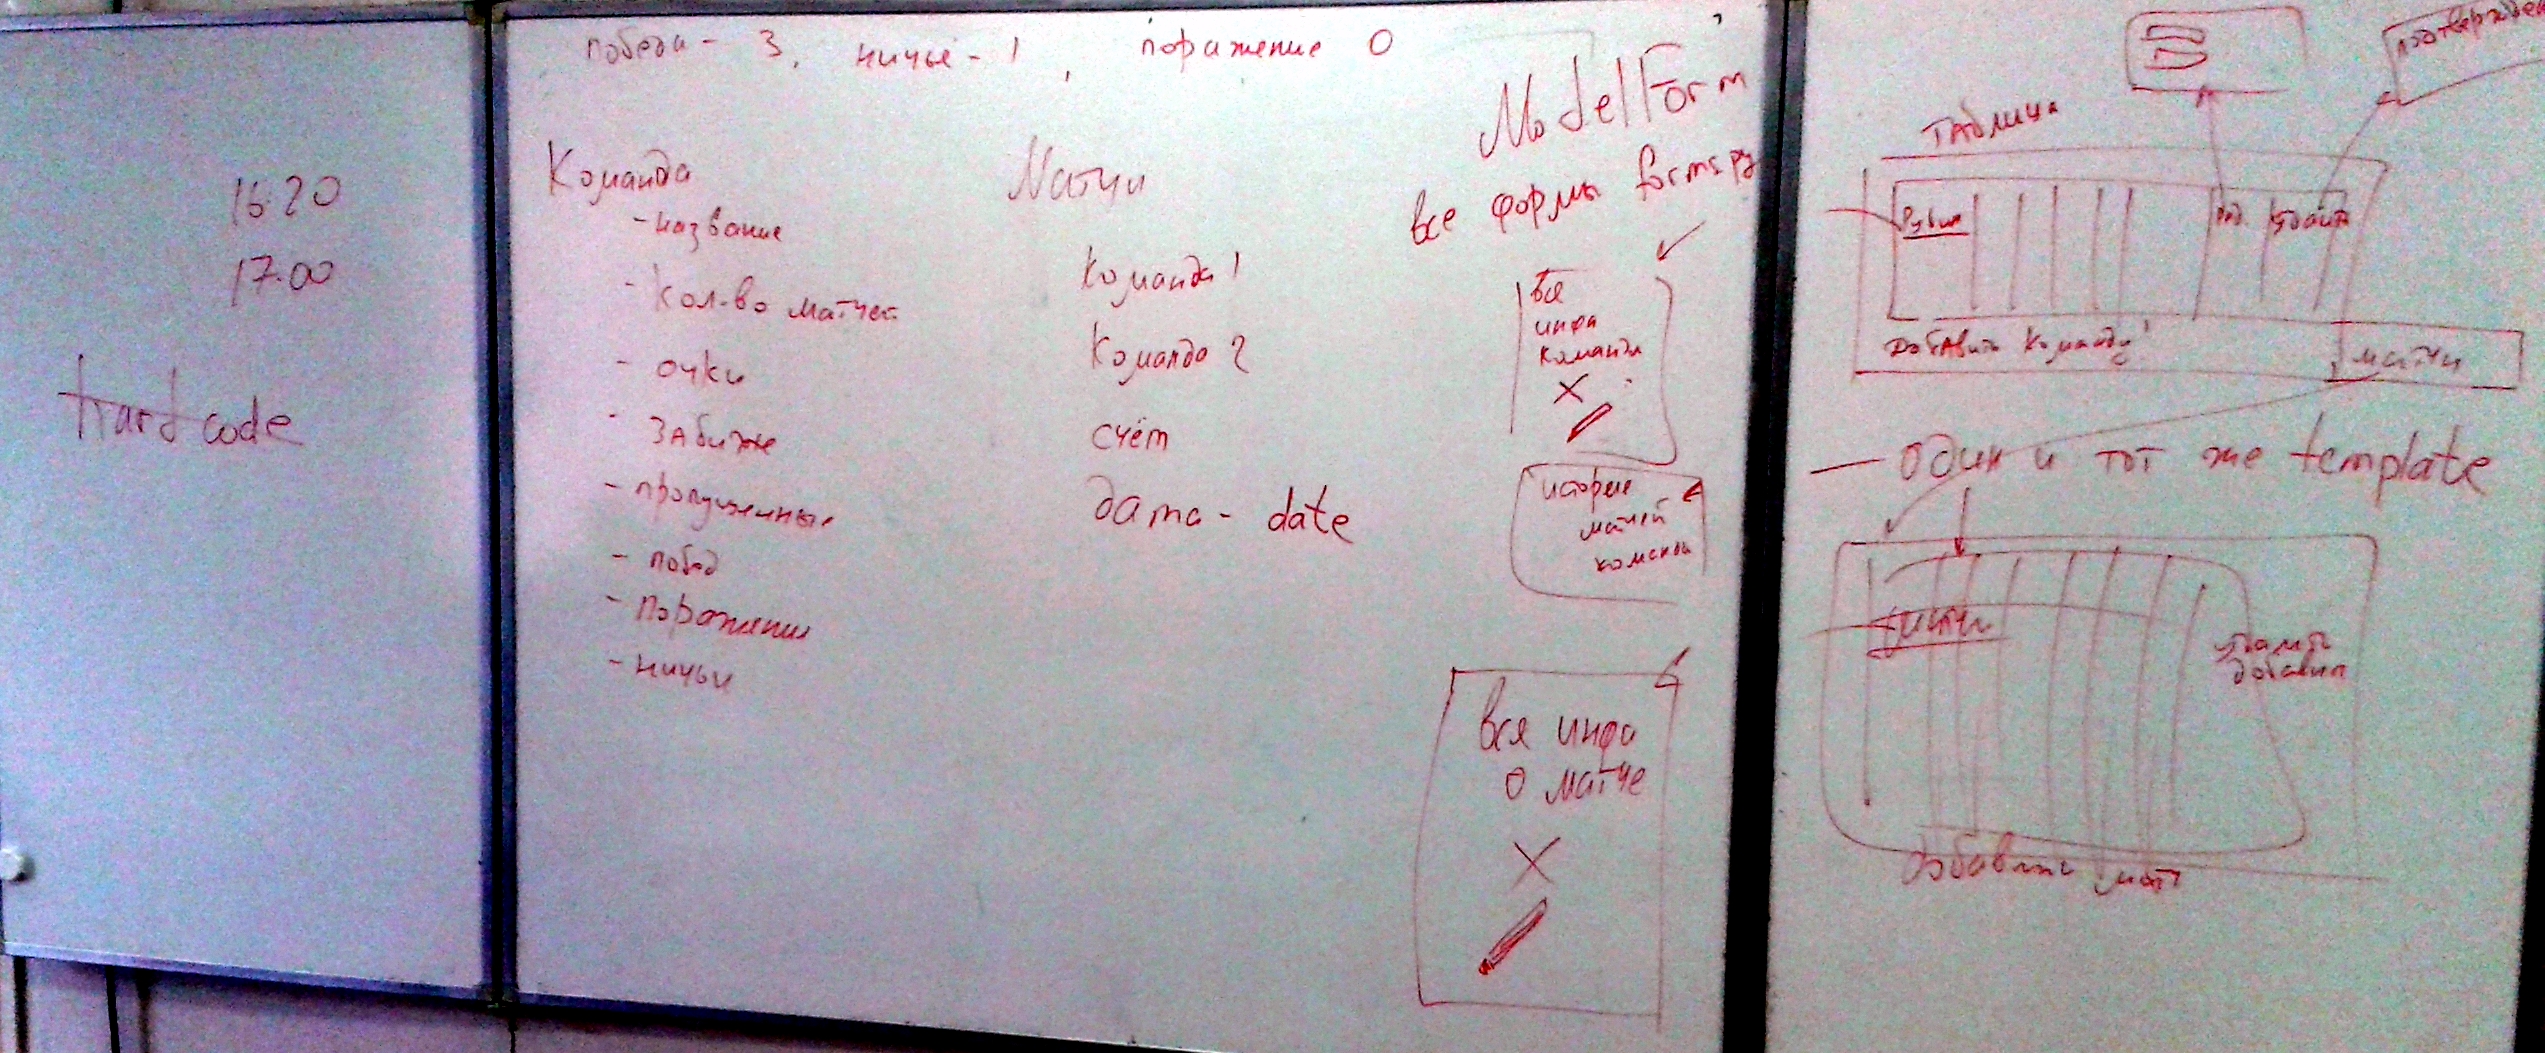 16:20
17.00
Hard code
победа - 3, ничье - 1, поражение 0
Команда
- название
- кол-во матчей
- очки
- забитые
- пропущенные
- побед
- поражения
- ничьи
Матчи
Команда 1
Команда 2
счёт
дата - date
ModelForm
все формы forms.py
Вся
инфа
команды
история
матчей
команды
вся инфа
о матче
Таблица
Рубин
ред.
удалить
Добавить команду
матчи
— один и тот же template
добавить матч